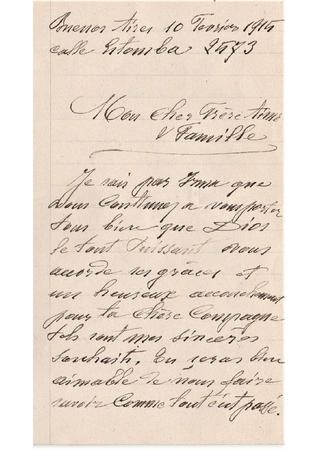 Buenos Aires 10 Fevrier 1915
calle Estomba 2573
Mon Cher Frère Aimé
& Famille
Je sais par Irma que
vous Continuez a vous porter
tous bien que Dios
le tout Puissant vous
accorde ses grâces et
un heureux accouchement
pour ta Chère Compagne
tels sont mes sincères
Souhaits. Tu seras bien
aimable de nous faire
savoir Comme tout c'est passé.